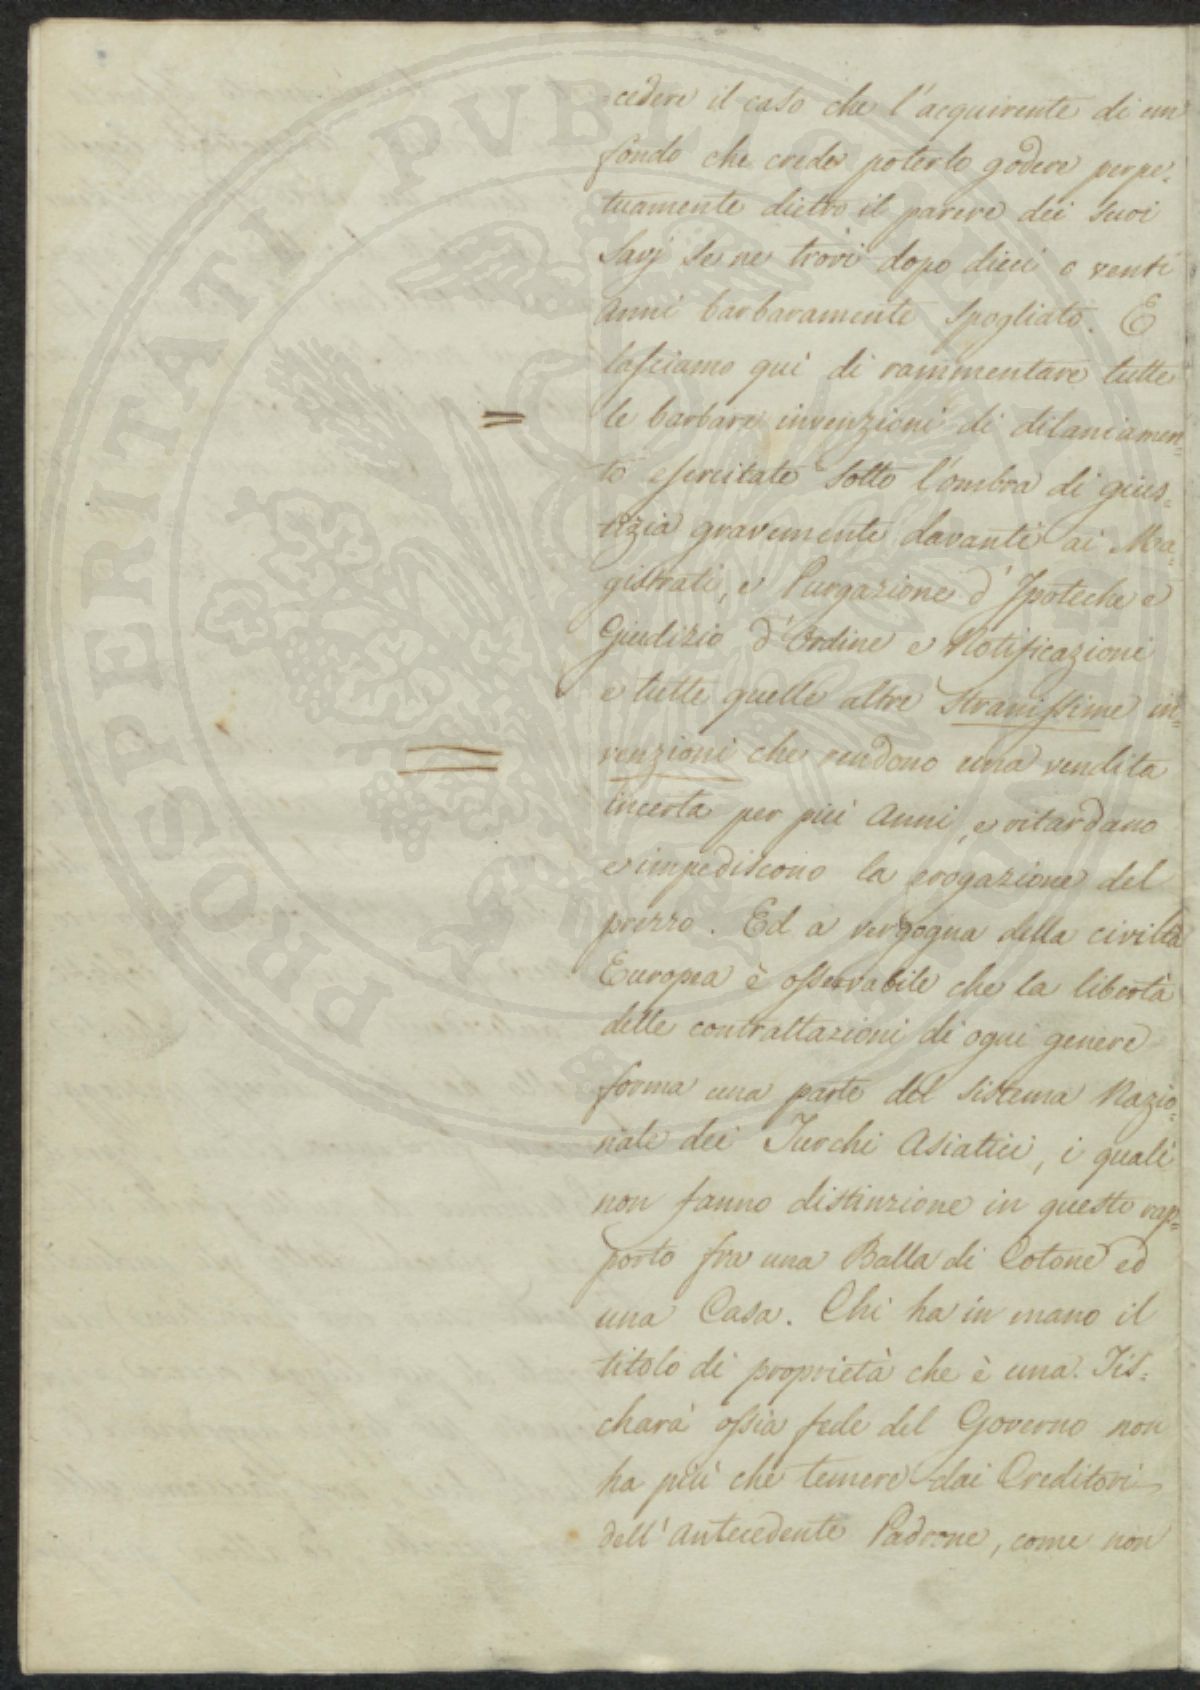 =cedere il caso che l'acquirente di un
fondo che crede poterlo godere perpe=
tuamente dietro il parere dei suoi
Savj se ne trovi dopo dieci o venti
anni barbaramente spogliato. E
lasciamo qui di rammentare tutte
le barbare invenzioni di dilaniamen=
to esercitate sotto l'ombra di gius=
tizia gravemente davanti ai Ma=
gistrati, e Purgazione d'Ipoteche e
Giudizio d'Ordine e Notificazioni
e tutte quelle altre stranissime in=
venzioni che rendono una vendita
incerta per più anni, e ritardano
e impediscono la erogazione del
prezzo. Ed a vergogna della civiltà
Europea è osservabile che la libertà
delle contrattazioni di ogni genere
forma una parte del sistema Nazio=
nale dei Turchi Asiatici, i quali
non fanno distinzione in questo rap=
porto fra una Balla di Cotone ed
una Casa. Chi ha in mano il
titolo di proprietà che è una Tis=
charà ossia fede del Governo non
ha più che temere dai Creditori
dell'antecedente Padrone, come non
PROSPERITATI PVBLICAE